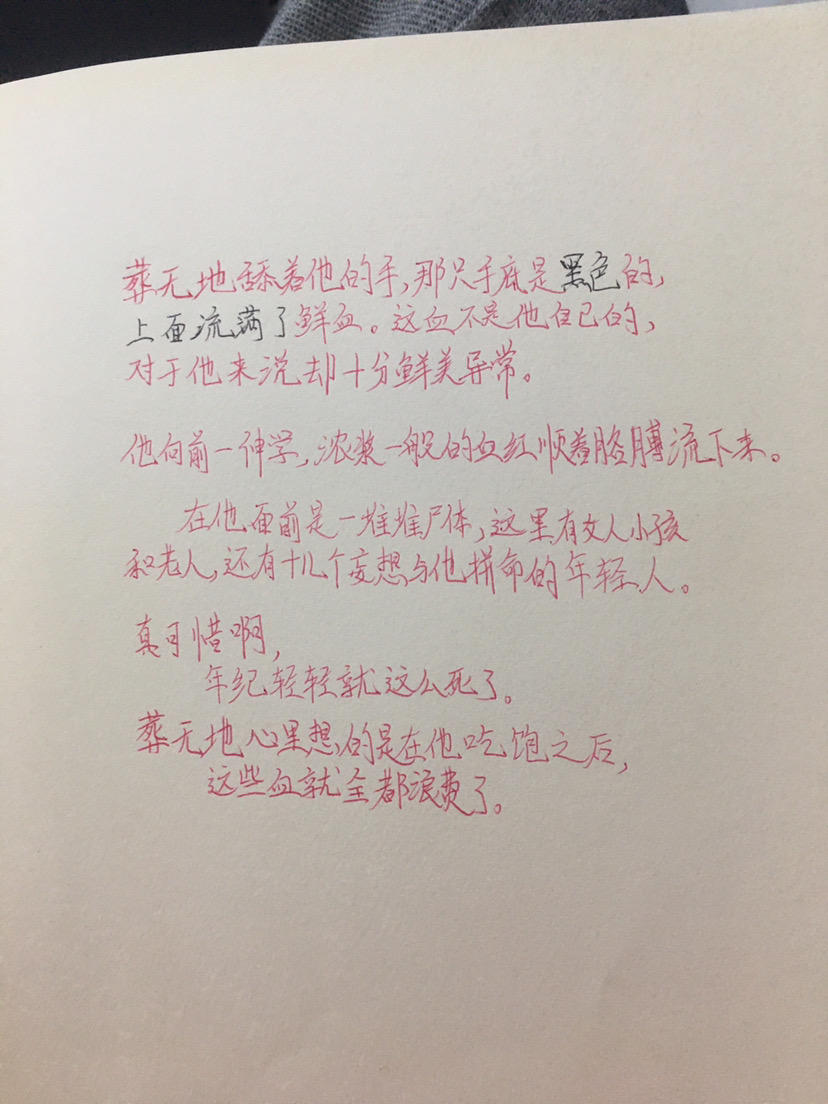 葬无地舔着他的手，那只手底是黑色的，
上面流满了鲜血。这血不是他自己的，
对于他来说却十分鲜美异常。
他向前一伸学，浓浆一般的血红顺着胳膊流下来。
在他面前是一堆堆尸体，这里有女人小孩
和老人，还有十几个妄想与他拼命的年轻人。
真可惜啊，
年纪轻轻就这么死了。
葬无地心里想的是在他吃饱之后，
这些血就全都浪费了。